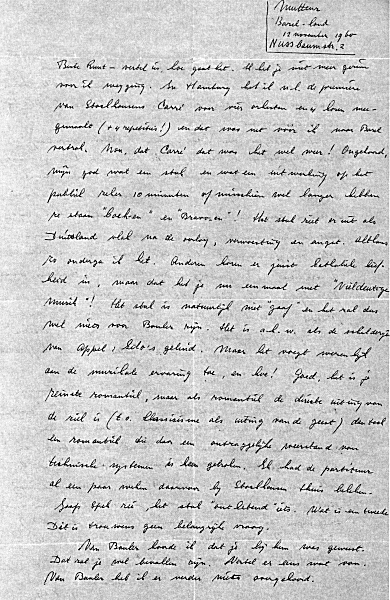 Muttenz
Basel-land
12 november 1960
Nussbaumstr. 2
Beste Ruut - vertel us, hoe gaat het. Ik heb je niet meer gezien
voor ik wegging. In Hamburg heb ik n.l. de première
van Stockhausens Carré voor vier orkesten en 4 koren mee-
gemaakt (+ 4 repetities!) en dat was net vóór ik naar Basel
vertrok. Nou, dat Carré dat was het wel weer! Ongelooflijk,
mijn god wat een stuk en wat een uitwerking op het
publiek zeker 10 minuten of misschien wel langer hebben
ze staan "Boehoeën" en Bravoën"! Het stuk ziet er uit als
Duitsland vlak na de oorlog, verwoesting en angst. Althans
zo onderga ik het. Anderen horen er juist
in, maar dat heb je nu eenmaal met "Vieldeutige
Musik"! Het stuk is natuurlijk niet "gaaf" en het zal dus
wel niets voor Boulez zijn. Het is a.h.w. als de schilderijen
van Appel; kilo's geluid. Maar het voegt werkelijk
aan de muzikale ervaring toe, en hoe! Goed, het is je
reinste romantiek, maar als romantiek de directe uiting van
de ziel is (t.o. klassicisme als uiting van de geest) dan toch
een romantiek die door een weerstand van
technische systemen is heen gebroken. Ik had de partituur
al een paar weken daarvoor bij Stockhausen thuis bekeken.
het stuk "ontbekend" iets. Wat is een tweede
Dát is trouwens geen belangrijke vraag.
Van Boulez hoorde ik, dat je bij hem was geweest.
Dat zal je wel bevallen zijn. Vertel er eens wat van.
Van Boulez heb ik er verder niets over gehoord.